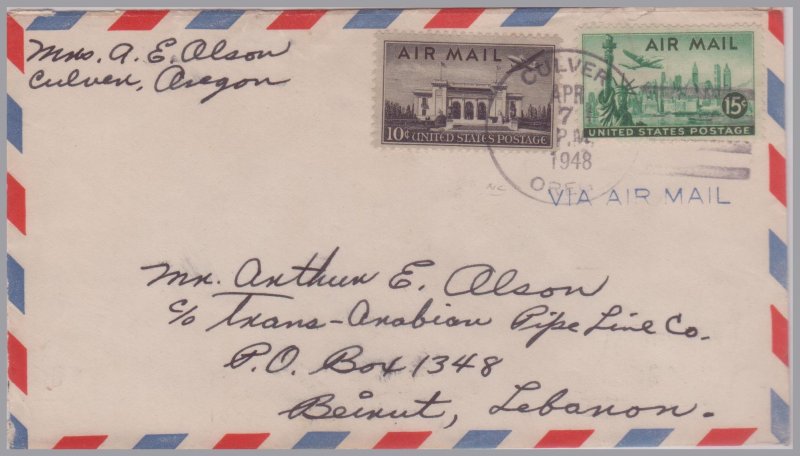 Mrs. A. E. Olson
Culver, Oregon
AIR MAIL
10¢ UNITED STATES POSTAGE
AIR MAIL
15¢
UNITED STATES POSTAGE
CULVER
APR
7
P.M.
1948
OREG
VIA AIR MAIL
NC
Mr. Arthur E. Olson
c/o Trans-Arabian Pipe Line Co.
P.O. Box 1348
Beirut, Lebanon.